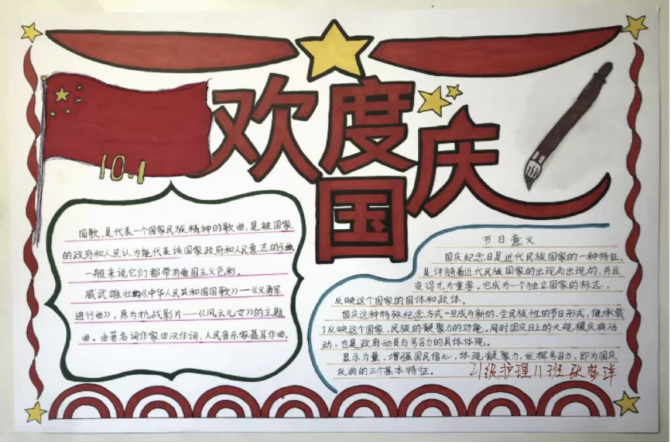 欢度国庆
10.1
国歌,是代表一个国家民族精神的歌曲,是被国家
的政府和人民认为能代表该国家政府和人民意志的乐曲
一般来说它们都带有爱国主义色彩。
威武雄壮的《中华人民共和国国歌》——《义勇军
进行曲》,原为抗战影片——《风云儿女》的主题
曲。由著名词作家田汉作词,人民音乐家聂耳作曲。
节日意义
国庆纪念日是近代民族国家的一种特征,
是伴随着近代民族国家的出现而出现的,并且
变得尤为重要,它成为一个独立国家的标志,
反映这个国家的国体和政体。
国庆这种特殊纪念方式一旦成为新的、全民族性的节日形式,便承载
了反映这个国家、民族的凝聚力的功能,同时国庆日上的大规模庆祝活
动,也是政府动员与号召力的具体体现。
显示力量、增强国民信心,体现凝聚力,发挥号召力,即为国庆
庆典的三个基本特征。
21级护理11班张梦洋